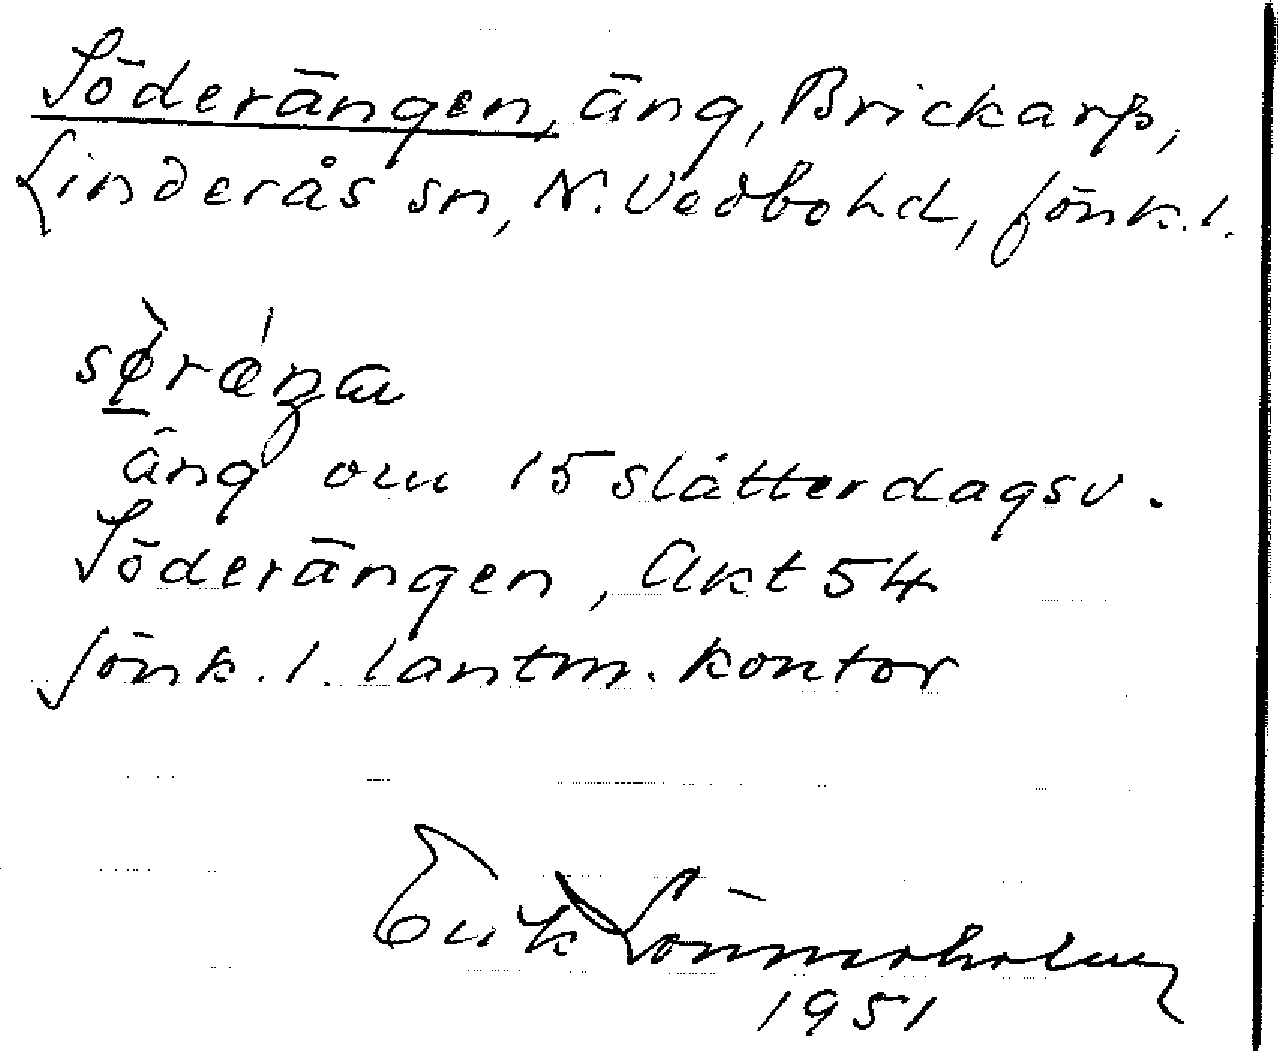 Söderängen, äng, Brickarp,
Linderås sn, N. Vedbohd, Jönk. l.
äng om 15 slåtterdagsv.
Söderängen, Akt 54
Jönk. l. lantm. kontor
Erik Lönnerholm
1951